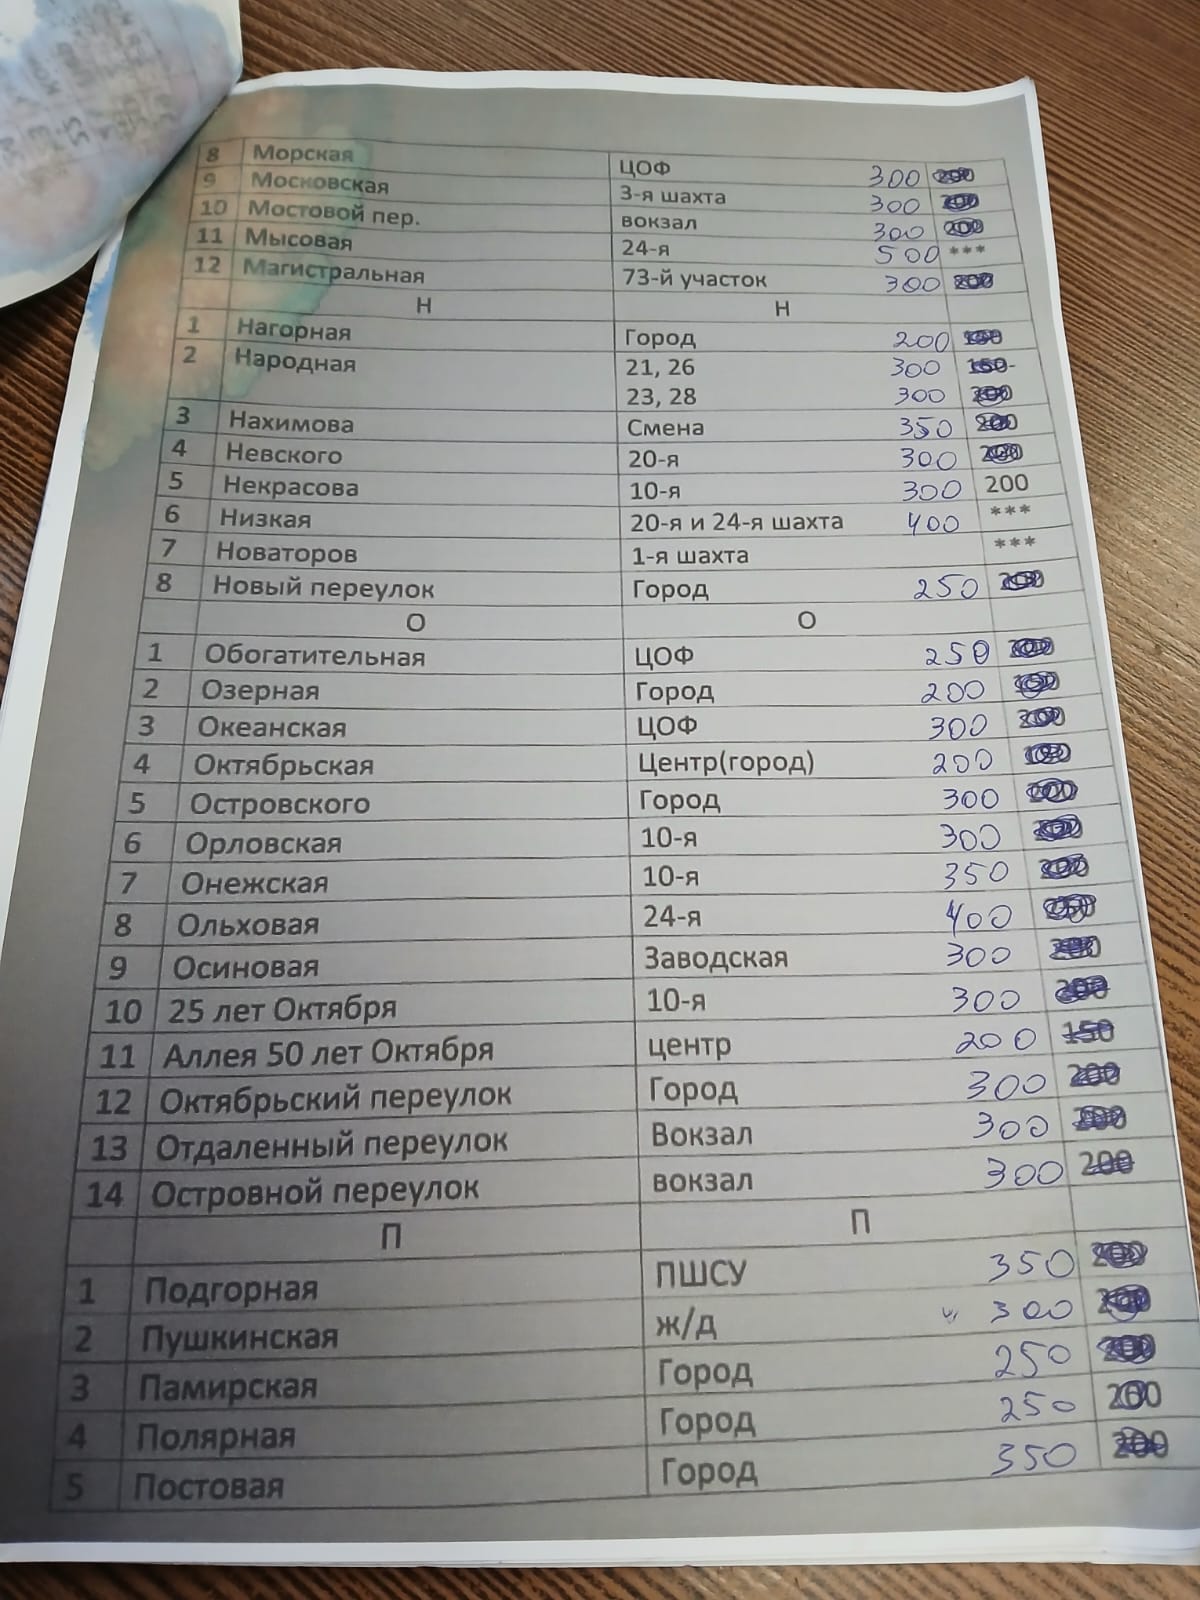 8 Морская ЦОФ 300
9 Московская 3-я шахта 300
10 Мостовой пер. вокзал 300 200
11 Мысовая 24-я 500 ***
12 Магистральная 73-й участок 300 200
Н Н
1 Нагорная Город 200
2 Народная 21, 26 300 150-
23, 28 300 200
3 Нахимова Смена 350 200
4 Невского 20-я 300
5 Некрасова 10-я 300 200
6 Низкая 20-я и 24-я шахта 400 ***
7 Новаторов 1-я шахта ***
8 Новый переулок Город 250
О О
1 Обогатительная ЦОФ 250
2 Озерная Город 200
3 Океанская ЦОФ 300 200
4 Октябрьская Центр(город) 200
5 Островского Город 300 200
6 Орловская 10-я 300
7 Онежская 10-я 350
8 Ольховая 24-я 400
9 Осиновая Заводская 300
10 25 лет Октября 10-я 300 200
11 Аллея 50 лет Октября центр 200 150
12 Октябрьский переулок Город 300 200
13 Отдаленный переулок Вокзал 300 200
14 Островной переулок вокзал 300 200
П П
1 Подгорная ПШСУ 350 200
2 Пушкинская ж/д 300
3 Памирская Город 250 200
4 Полярная Город 250 200
5 Постовая Город 350 200